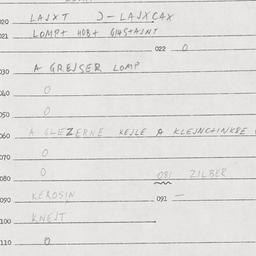 020 LAJXT J-LAJXCAX
021 LOMP+ HOB+ GI4S+AJNT
022 O
030 A GREJSER LOMP
040 O
050 O
060 A GLEZERNE KEJLE A KLEJNC+INKEE
070 O
080 O 081 ZILBER
090 KEROSIN 091 —
100 KNEJT
110 O